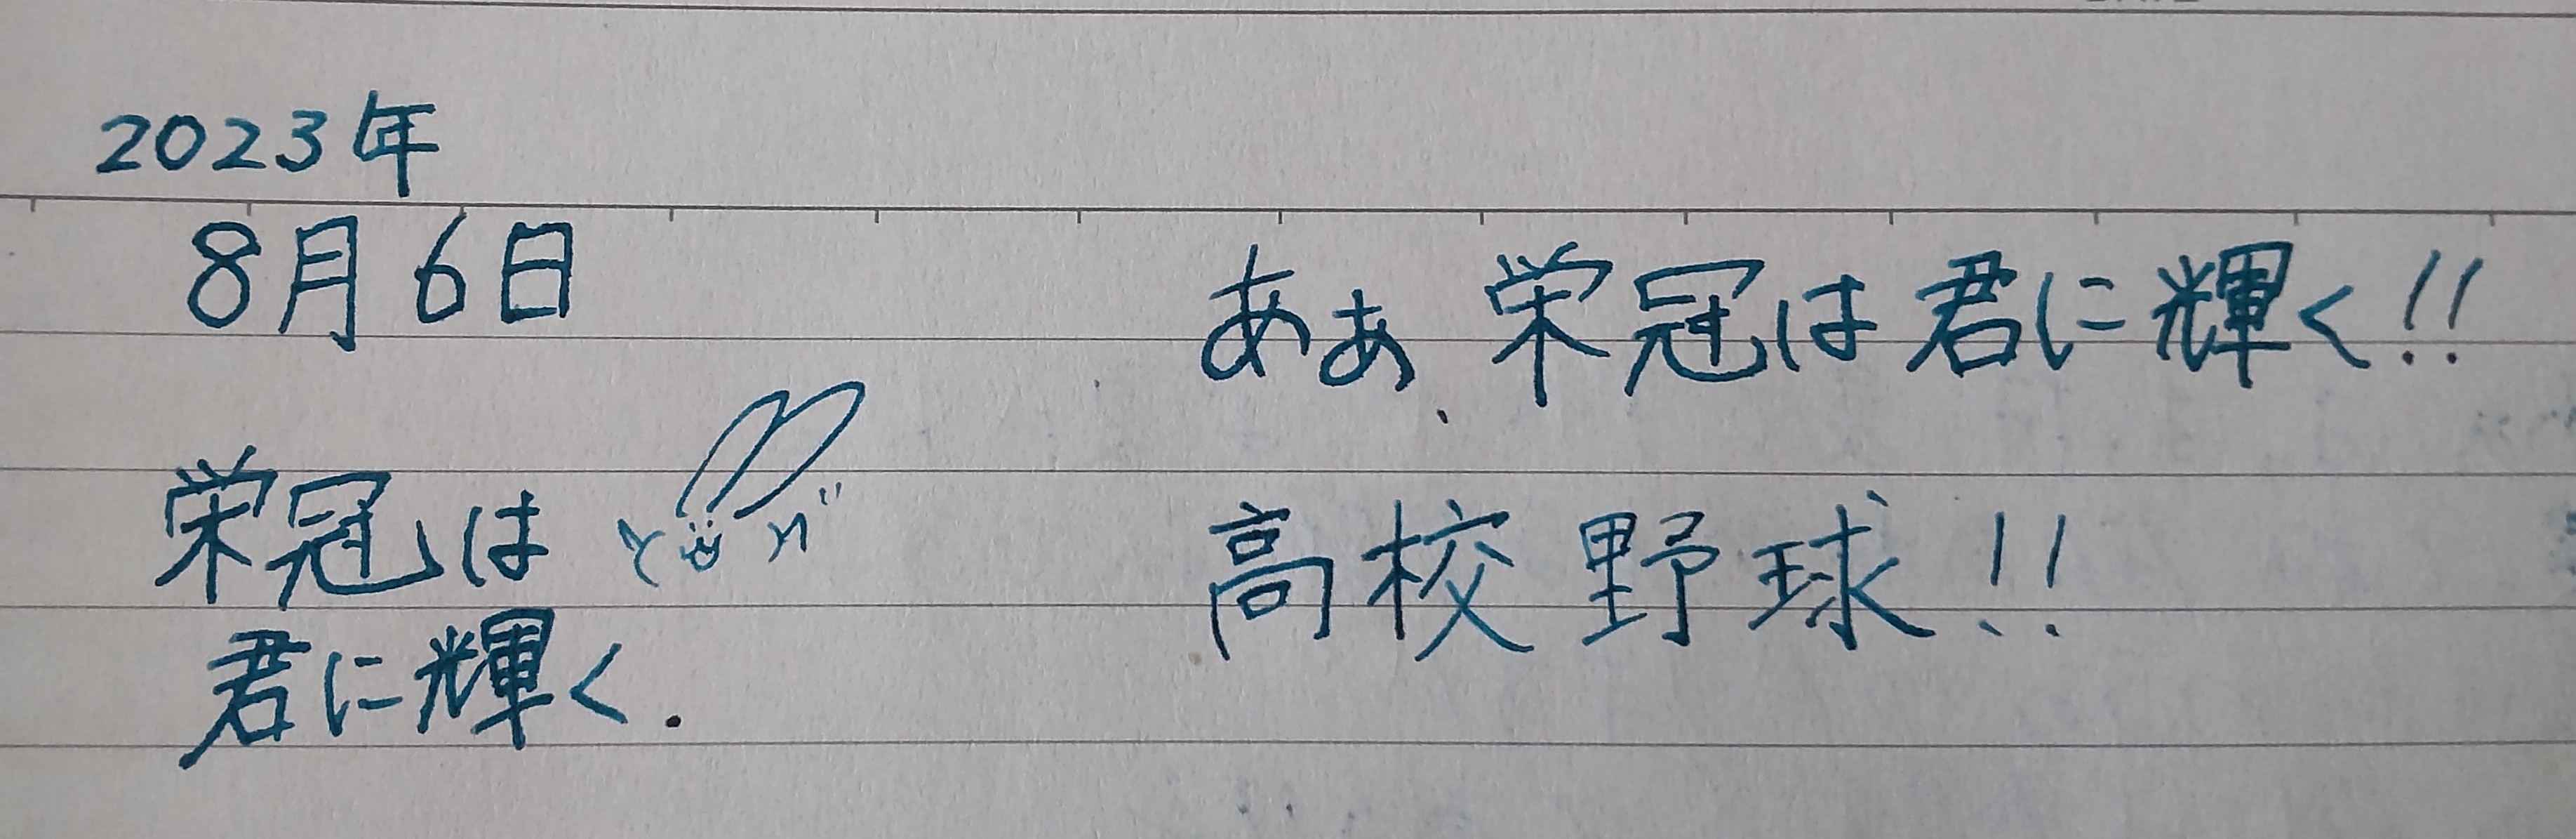 2023年
8月6日
栄冠は
君に輝く.
あぁ、栄冠は君に輝く!!
高校野球!!